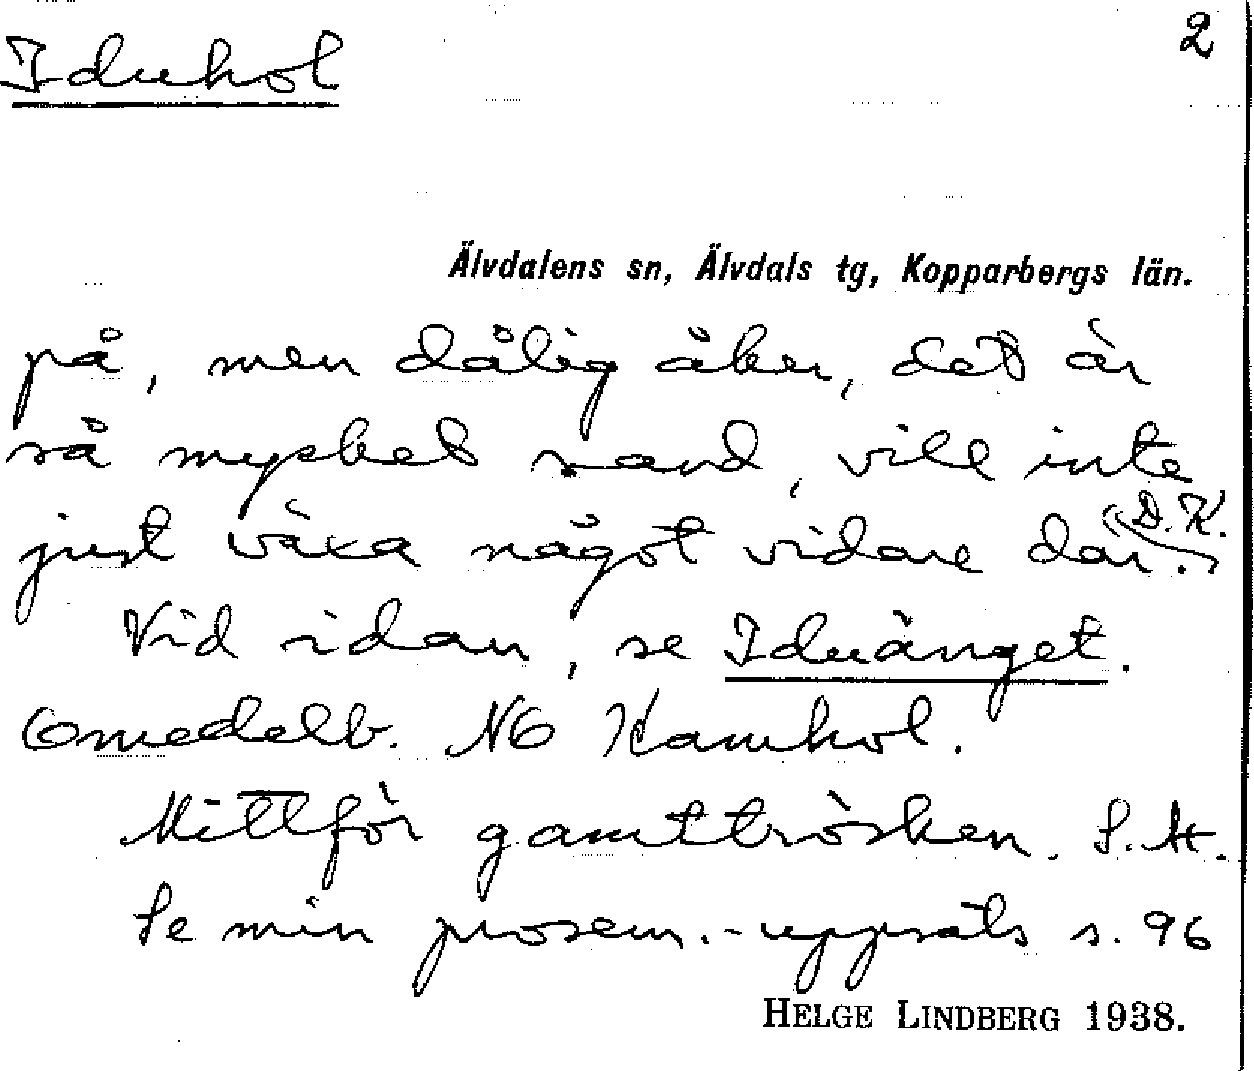 Iduhol
2
Älvdalens sn, Älvdals tg, Kopparbergs län.
på, men dålig åker, det är
så mycket sand, vill inte
just växa något vidare där.
D. K.
Vid idan, se Iduänget.
Omedelb. NO Kamhol.
Mittför gamttrösken. S. H.
Se min prosem.-uppsats s. 96
HELGE LINDBERG 1938.